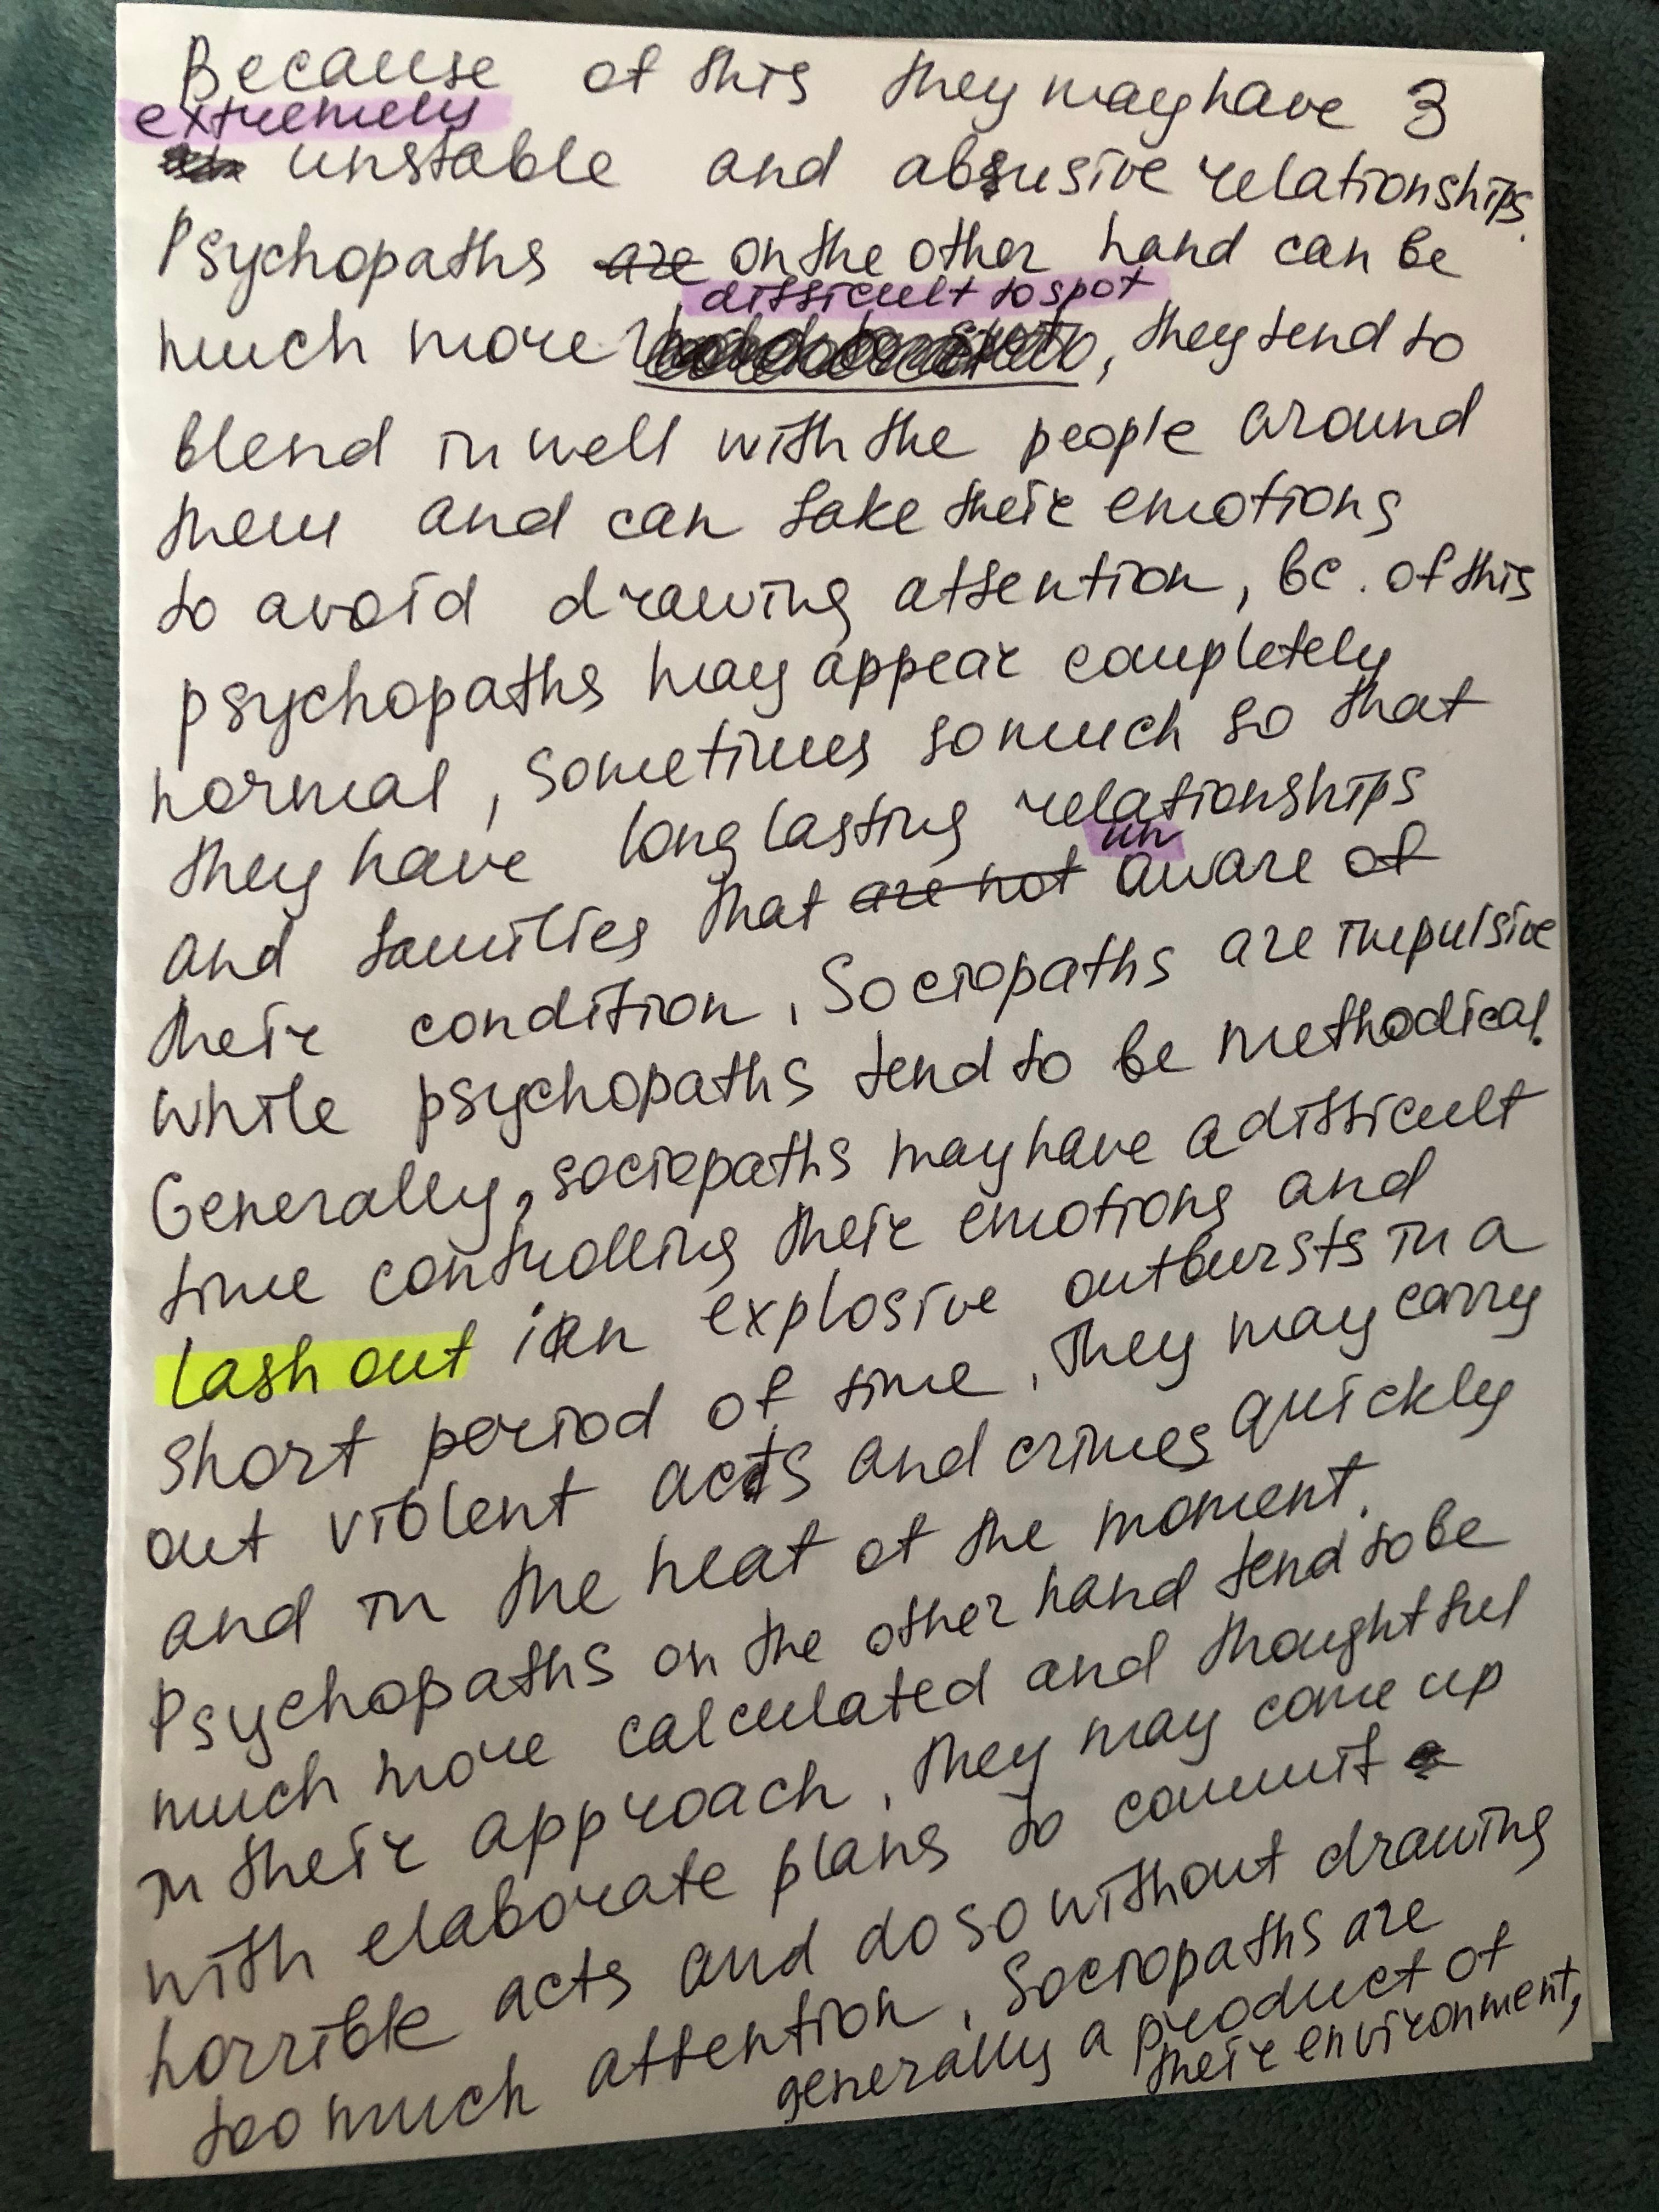 Because of this they may have 3
extremely
unstable and abusive relationships.
Psychopaths are on the other hand can be
difficult to spot
much more , they tend to
blend in well with the people around
them and can fake their emotions
to avoid drawing attention, bc. of this
psychopaths may appear completely
normal, sometimes so much so that
they have long lasting relationships
un
and families that are not aware of
their condition. Sociopaths are impulsive
while psychopaths tend to be methodical.
Generally, sociopaths may have a difficult
time controlling their emotions and
lash out in explosive outbursts in a
short period of time. They may carry
out violent acts and crimes quickly
and in the heat of the moment.
Psychopaths on the other hand tend to be
much more calculated and thoughtful
in their approach, they may come up
with elaborate plans to commit
horrible acts and do so without drawing
too much attention. Sociopaths are
generally a product of
their environment,